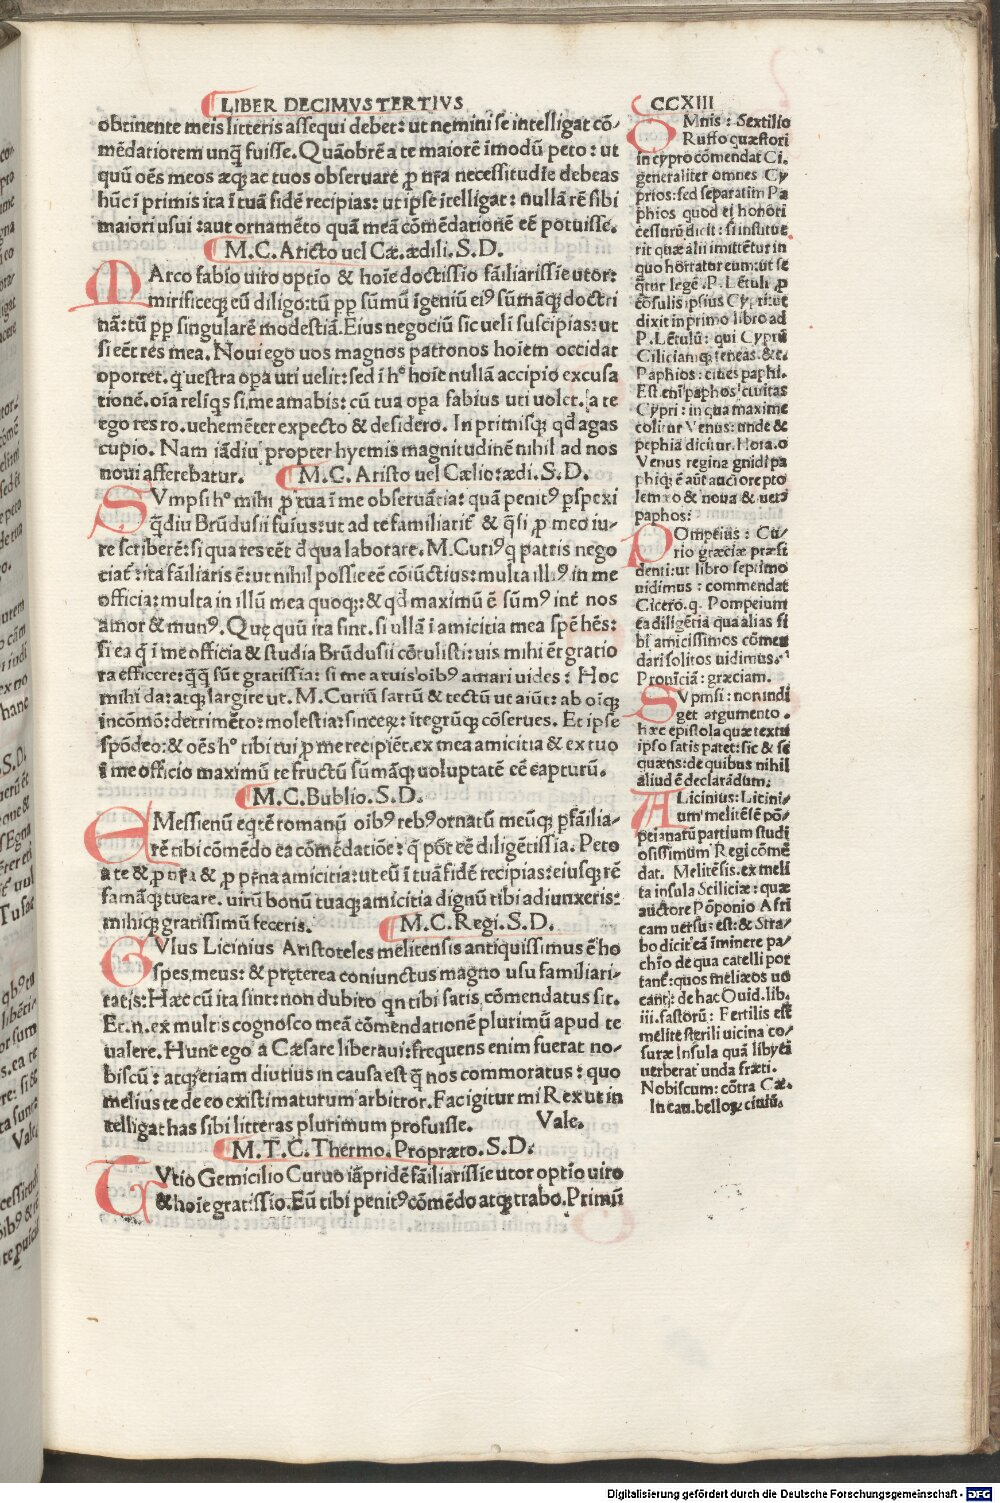 LIBER DECIMVS TERTIVS
CCXIII
obtinente meis litteris assequi debet: ut nemini se intelligat cō-
mēdatiorem unq̄ fuisse. Quāobrē a te maiorē ī modū peto: ut
quū oēs meos æq; ac tuos obseruare ꝓ nr̄a necessitudīe debeas
hūc ī primis ita ī tuā fidē recipias: ut ipse ītelligat: nullā rē sibi
maiori usui: aut ornamēto quā meā cōmēdationē eē potuisse.
M.C. Aricto uel Cæ. ædili. S.D.
MArco fabio uiro optīo & hoīe doctissīo fāiliarissīe utor:
mirificeq; eū diligo: tū ꝓp sūmū īgeniū eiꝰ sūmāq; doctri
nā: tū ꝓp singularē modestiā. Eius negociū sic ueli suscipias: ut
si eēt res mea. Noui ego uos magnos patronos hoīem occidat
oportet. q̇ uestra opa uti uelit: sed ī hº hoīe nullā accipio excusa
tionē. oīa relīqs si me amabis: cū tua opa fabius uti uolet. a te
ego res ro. uehemēter expecto & desidero. In primisq; qd̄ agas
cupio. Nam iādiu propter hyemis magnitudinē nihil ad nos
noui afferebatur.
M.C. Aristo uel Cælio: ædi. S.D.
SVmpsi hº mihi ꝓ tua ī me obseruātia: quā penitꝰ ꝑspexi
q̄diu Brūdusii fuius: ut ad te familiarit̄ & q̄si ꝓ meo iu-
re scriberē: si qua res eēt d̄ qua laborarē. M. Curiꝰ q patris nego
ciat̄: ita fāiliaris ē: ut nihil possie eē cōiūctius: multa illiꝰ in me
officia: multa in illū mea quoq;: & qd̄ maximū ē sūmꝰ int̄ nos
amor & munꝰ. Quę quū ita sint. si ullā ī amicitia mea spē hēs:
si ea q̇ ī me officia & studia Brūdusii cōtulisti: uis mihi ēt gratio
ra efficere: q̄q̄ sūt gratissīa: si me a tuis oībꝰ amari uides: Hoc
mihi da: atq; largire ut. M. Curiū sartū & tectū ut aiūt: ab oīq;
incōmo: detrimēto: molestia: sincerꝫ: ītegrūq; cōserues. Et ipse
spōdeo: & oēs hº tibi tui ꝓ me recipiēt. ex mea amicitia & ex tuo
ī me officio maximū te fructū sūmāq; uoluptatē eē capturū.
M.C. Bublio. S.D.
EMessienū eq̄tē romanū oībꝰ rebꝰ ornatū meūq; ꝑfailia-
rē tibi cōmēdo ea cōmēdatiōe: q̇ pōt eē diligētissīa. Peto
a te & ꝓ nr̄a & ꝓ pr̄na amicitia: ut eū ī tuā fidē recipias: eiusq; rē
famāq; tueare. uirū bonū tuaq; amicitia dignū tibi adiunxeris:
mihiq; gratissimū feceris.
M.C. Regi. S.D.
GVIus Licinius Aristoteles melitensis antiquissimus ē ho
spes meus: & pręterea coniunctus magno usu familiari-
tatis: Hæc cū ita sint: non dubito qn tibi satis cōmendatus sit.
Et. n. ex multis cognosco meā cōmendationē plurimū apud te
ualere. Hunc ego a Cæsare liberaui: frequens enim fuerat no-
biscū: atq; etiam diutius in causa est q̄ nos commoratus: quo
melius te de eo existimaturum arbitror. Fac igitur mi Rex ut in
telligat has sibi litteras plurimum profuisse. Vale.
M.T.C. Thermo. Propræto. S.D.
CVtio Gemicilio Curuo iāpridē fāiliarissīe utor optīo uiro
& hoīe gratissīo. Eū tibi penitꝰ cōmēdo atq; trabo. Primū
OMnis: Sextilio
Ruffo quæstori
in cypro cōmendat Ci.
generaliter omnes Cy
prios: sed separatim Pa
phios quod ei honori
cessurū dicit: si institue
rit quæ alii imittētur in
quo hortatur eum: ut se
q̄tur legē. P. Lētuli. ꝓ
cōsulis ipsius Cypri: ut
dixit in primo libro ad
P. Lētulū: qui Cyprū
Ciliciamq; teneas. &c.
Paphios: ciues paphi.
Est enī paphos ciuitas
Cypri: in qua maxime
colitur Venus: unde &
pephia dicitur. Hora. o
Venus regina gnidi pa
phiq;: ē aūt auctore pto
lemæo & noua & uetꝰ
paphos:
POmpeius: Cu-
rio græciæ præsi
denti: ut libro septimo
uidimus: commendat
Cicero. q. Pompeium
ea diligētia qua alias si
bi amicissimos cōmen
dari solitos uidimus.
Prouīciā: græciam.
SVpmsi: non indi
get argumento.
hæc epistola quæ textu
ipso satis patet: sic & se
quæns: de quibus nihil
aliud ē declarādum.
ALicinius: Licini-
um melitēsē pō-
peianarū partium studi
osissimum Regi cōmē
dat. Melitēsis. ex meli
ta insula Sciliciæ: quæ
auctore Pōponio Afri
cam uersus: est: & Stra-
bo dicit eā iminere pa-
chīo de qua catelli por
tant̄: quos meliæos uo
cant: de hac Ouid. lib.
iii. fastorū: Fertilis est
melite sterili uicina co-
suræ Insula quā libyca
uerberat unda fræti.
Nobiscum: cōtra Cæ.
In eau. belloꝫ ciuiū.
Digitalisierung gefördert durch die Deutsche Forschungsgemeinschaft - DFG